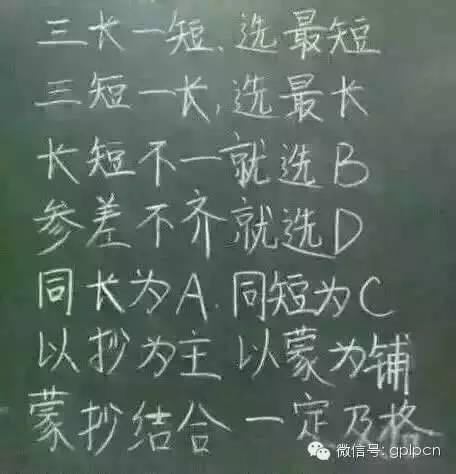 三长一短、选最短
三短一长,选最长
长短不一就选B
参差不齐就选D
同长为A.同短为C
以抄为主 以蒙为铺
蒙抄结合 一定及格
微信号: gplpcn